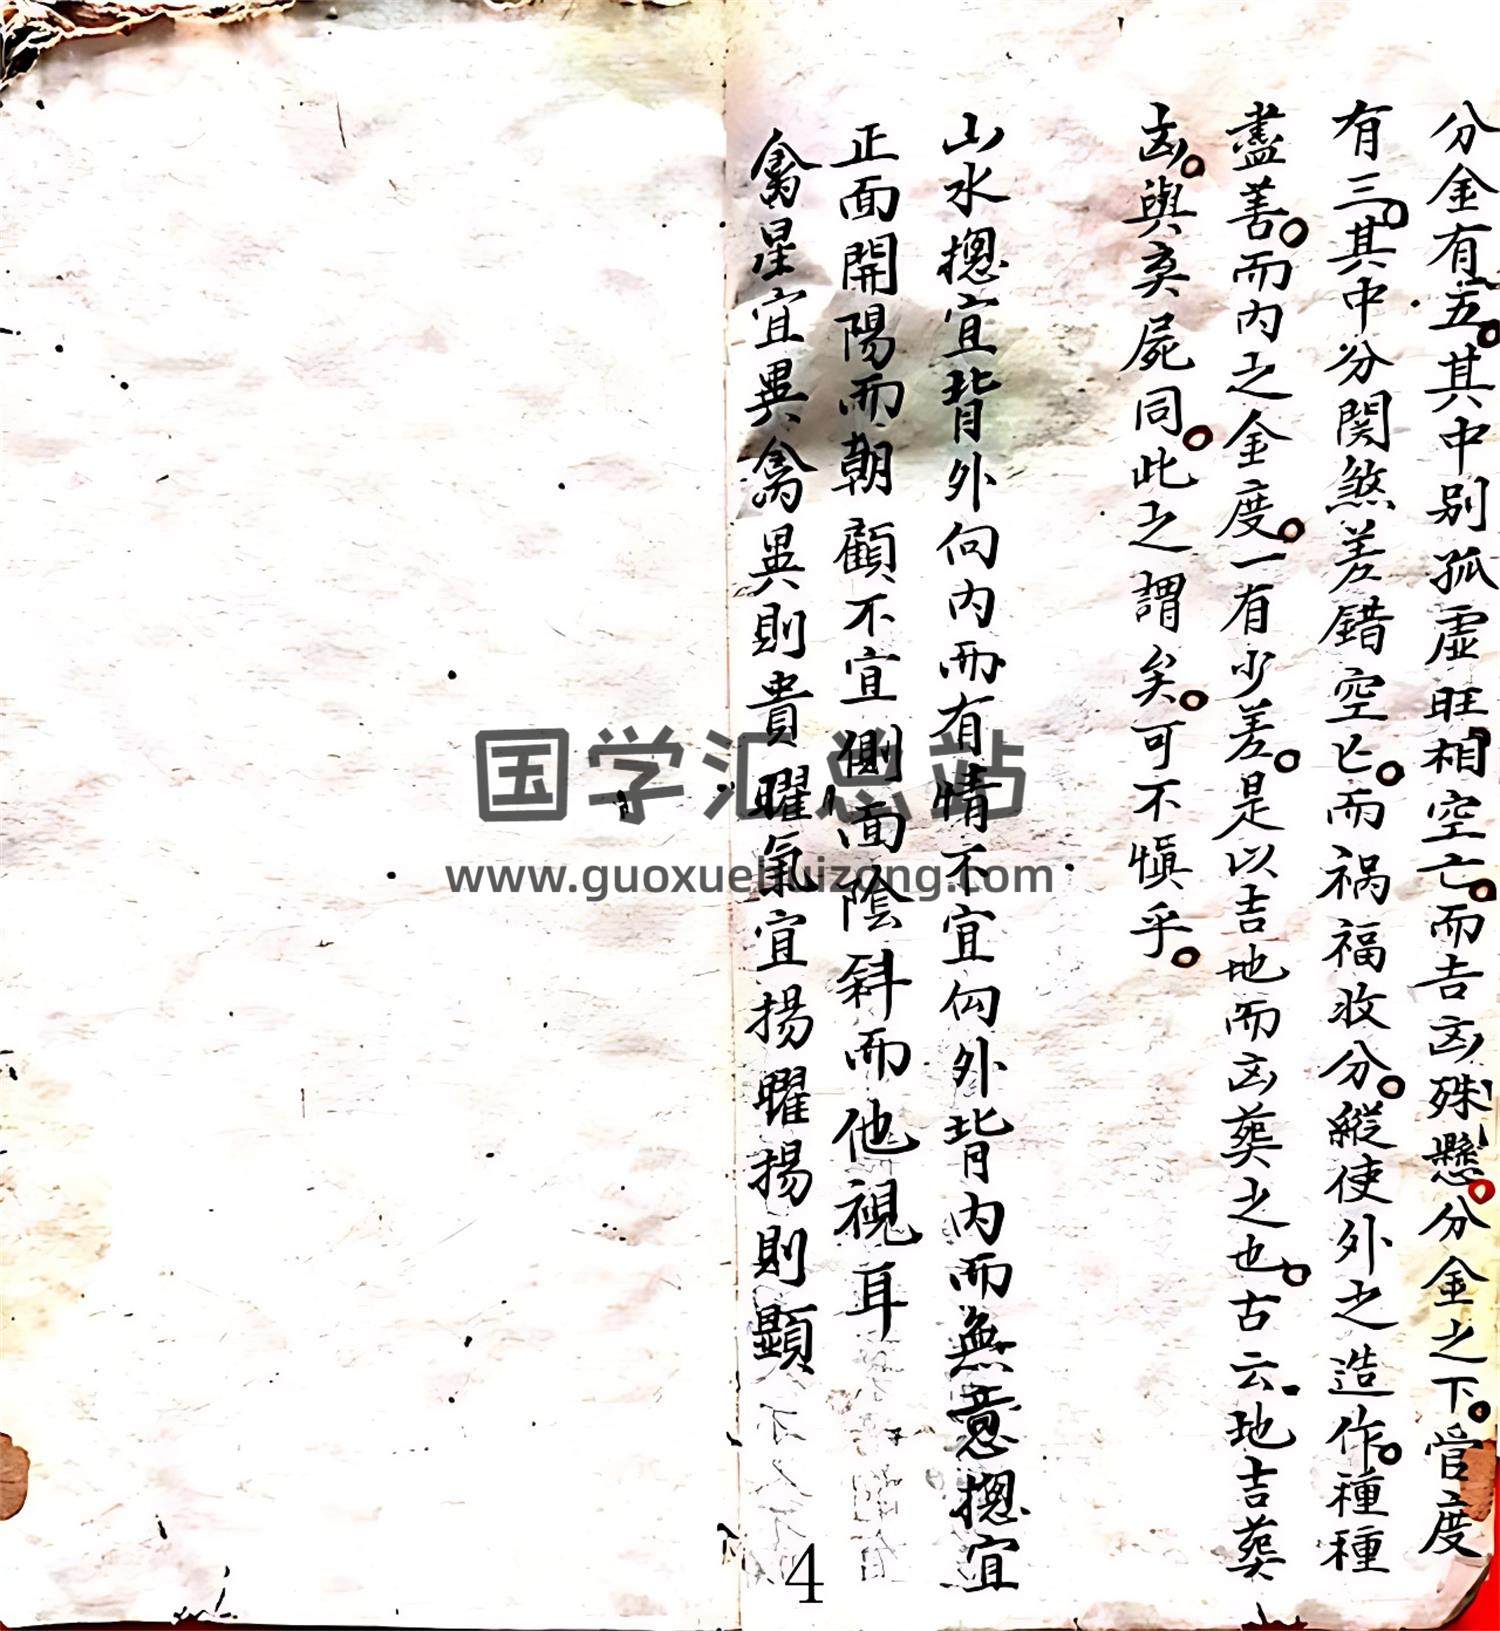 分金有五。其中别孤虚旺相空亡。而吉凶殊懸。分金之下。管度
有三。其中分関煞差錯空亡。而禍福收分。縱使外之造作。種種
盡善。而内之金度。一有少差。是以吉地而凶葬之也。古云。地吉葬
凶。與棄屍同。此之謂矣。可不慎乎。
山水摠宜背外向内而有情不宜向外背内而無意摠宜
正面開陽而朝顧不宜側面陰斜而他視耳
禽星宜異禽異則貴曜氣宜揚曜揚則顯
国学汇总站
www.guoxuehuizong.com
4